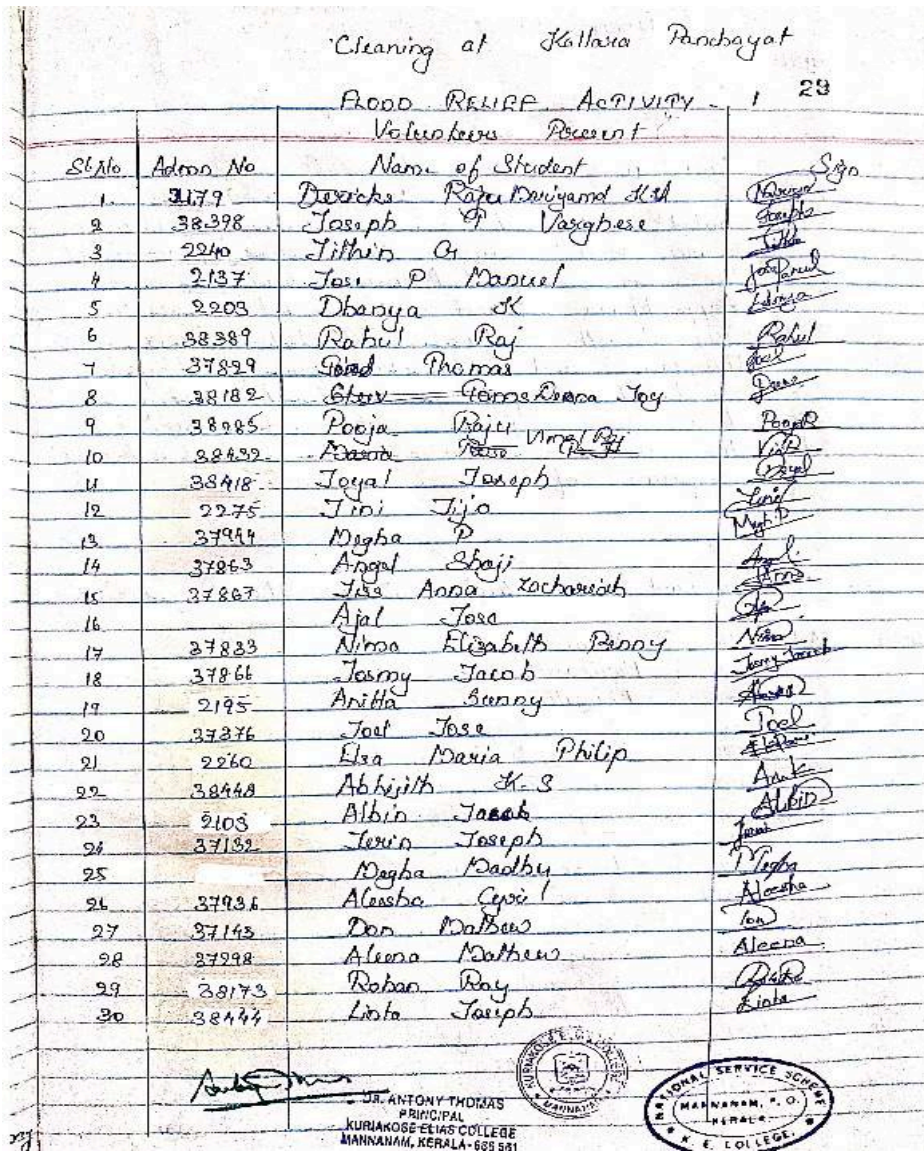 Cleaning at Kallara Panchayat
29
FLOOD RELIEF ACTIVITY - 1
Volunteers Present
Sl.No Admn No Name of Student Sign
1. 3179 Raju
2 38398 Joseph P Varghese Joseph
3 2240 Jithin G
4 2137 Jose P Manuel
5 2203 Dhanya K
6 38389 Rahul Raj Rahul
7 37829 Thomas
8 38182 Joy
9 38285 Pooja Raju PoojaR
10 38432 Vimal Raj
11 38418 Joyal Joseph Joyal
12 2275 Jini Jijo Jini
13 37944 Megha P Megh.P
14 37863 Angel Shaji
15 37867 Jiss Anna Zachariah
16 Ajal Jose
17 37833 Nima Elizabeth Binny Nima
18 37866 Josmy Jacob Josmy Jacob
19 2195 Anitta Sunny
20 37376 Joel Jose Joel
21 2260 Elsa Maria Philip
22 38448 Abhijith K-S
23 2103 Albin Jacob Albin
24 37132 Jerin Joseph
25 Megha Madhu Megha
26 37936 Aleesha Cyril Aleesha
27 37143 Don Mathew
28 37298 Aleena Mathew Aleena
29 38173 Rohan Roy
30 38444 Linta Joseph Linta
DR. ANTONY THOMAS
PRINCIPAL
KURIAKOSE ELIAS COLLEGE
MANNANAM, KERALA - 686 561
KURIAKOSE ELIAS COLLEGE
MANNANAM
NATIONAL SERVICE SCHEME
MANNANAM, P. O.
KERALA
K. E. COLLEGE.